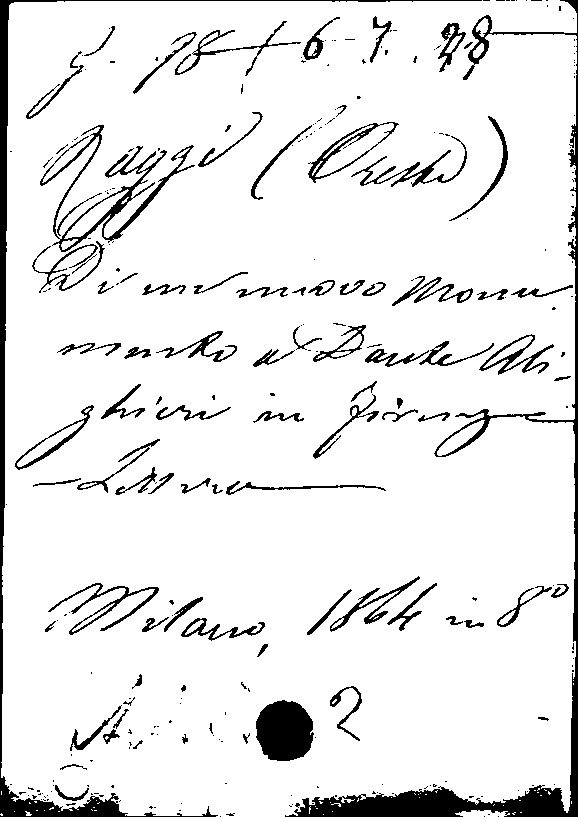 Raggi (Oreste)
Di un nuovo Monu
mento a Dante Ali-
ghieri in Firenze
- Lettera
Milano, 1864 in 8º
2